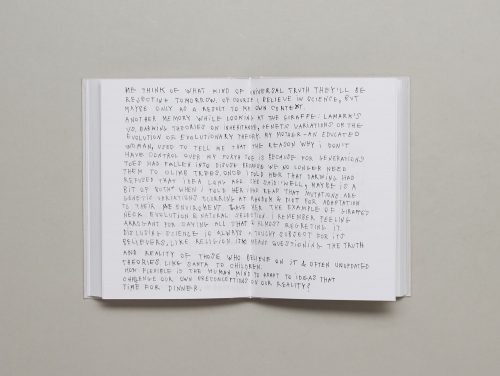 ME THINK OF WHAT KIND OF UNIVERSAL TRUTH THEY'LL BE
REJECTING TOMORROW. OF COURSE I BELIEVE IN SCIENCE, BUT
MAYBE ONLY AS A RESULT TO MY OWN CONTEXT.
ANOTHER MEMORY WHILE LOOKING AT THE GIRAFFE: LAMARK'S
VS. DARWING THEORIES ON INHERITANCE, GENETIC VARIATIONS OR THE
EVOLUTION OF EVOLUTIONARY THEORY. MY MOTHER—AN EDUCATED
WOMAN, USED TO TELL ME THAT THE REASON WHY I DON'T
HAVE CONTROL OVER MY FOURTH TOE IS BECAUSE FOR GENERATIONS
TOES HAD FALLEN INTO DISUSE BECAUSE WE NO LONGER NEED
THEM TO CLIMB TREES. ONCE I TOLD HER THAT DARWING HAD
REFUSED THAT IDEA LONG AGO SHE SAID: WELL, MAYBE IS A
BIT OF BOTH. WHEN I TOLD HER I HAD READ THAT MUTATIONS ARE
GENETIC VARIATIONS OCURRING AT RANDOM & NOT FOR ADAPTATION
TO THEIR ENVIRONMENT I GAVE HER THE EXAMPLE OF GIRAFFE'S
NECK EVOLUTION & NATURAL SELECTION. I REMEMBER FEELING
ARROGANT FOR SAYING ALL THAT & ALMOST REGRETING IT.
DISCUSSING SCIENCE IS ALWAYS A TOUCHY SUBJECT FOR ITS
BELIEVERS, LIKE RELIGION. IT MEANS QUESTIONING THE TRUTH
AND REALITY OF THOSE WHO BELIEVE ON IT & OFTEN UNUPDATED
THEORIES LIKE SANTA TO CHILDREN.
HOW FLEXIBLE IS THE HUMAN MIND TO ADAPT TO IDEAS THAT
CHALLENGE OUR OWN PRECONCEPTIONS ON OUR REALITY?
TIME FOR DINNER.